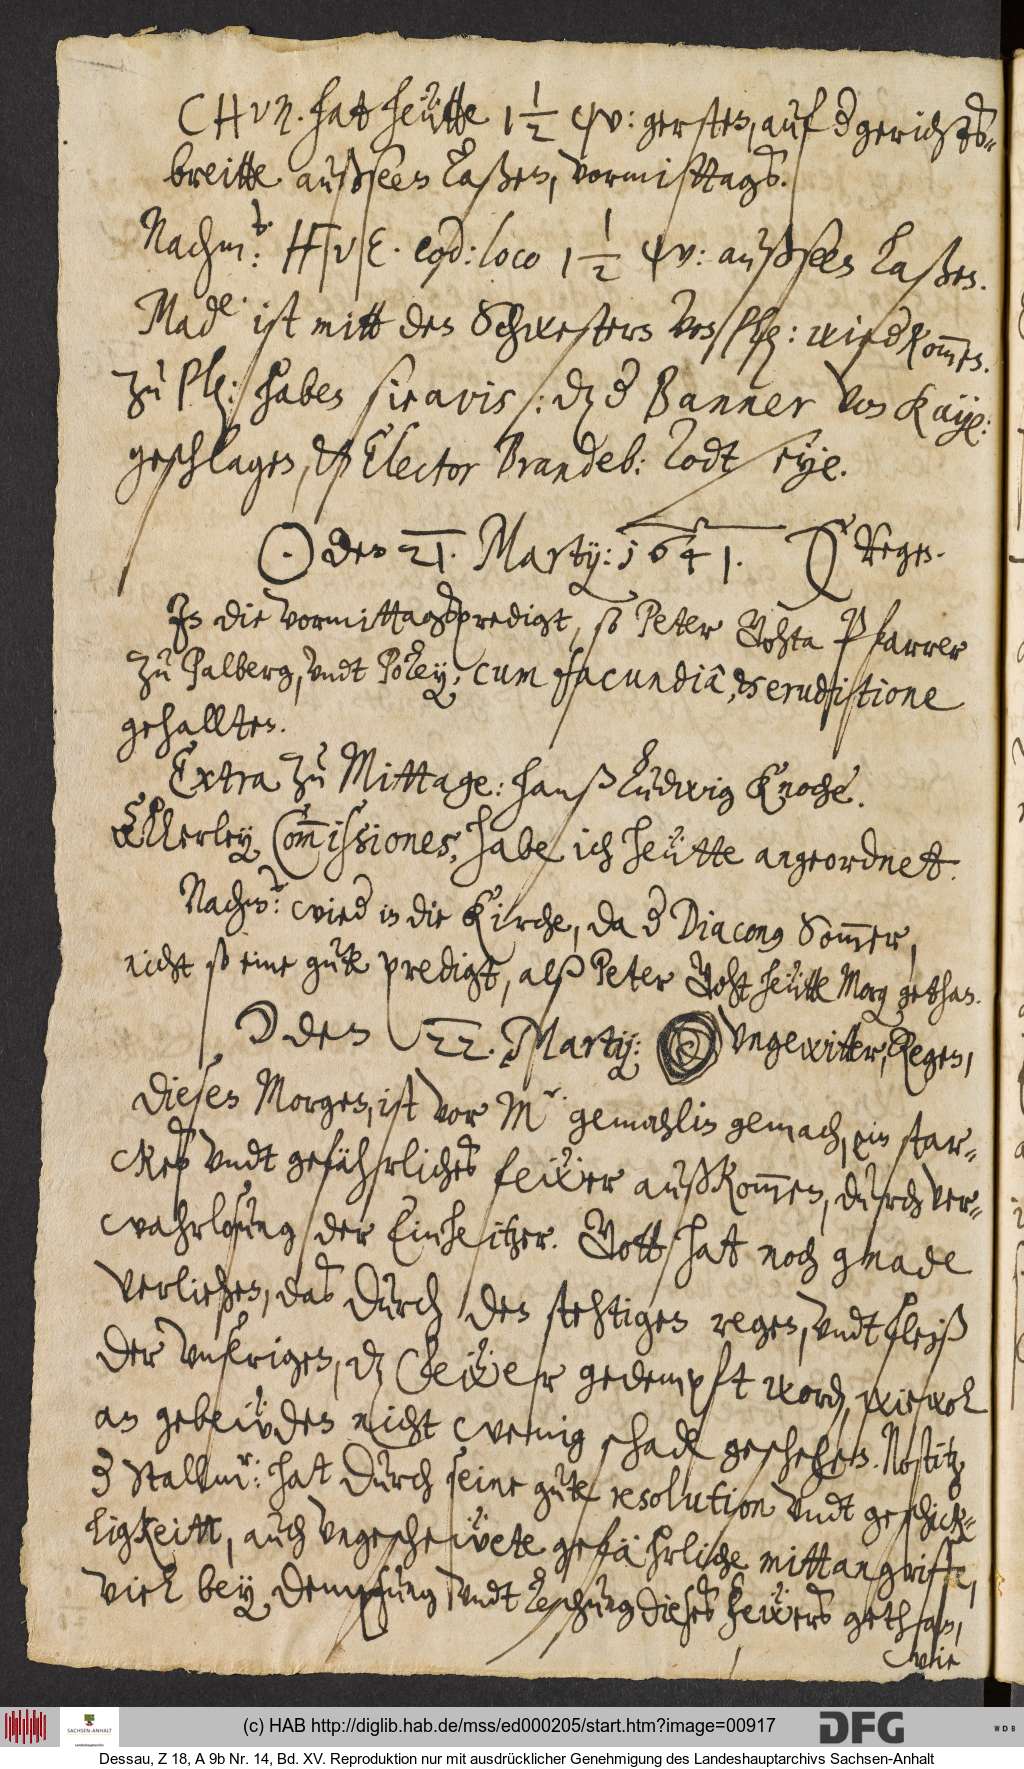 CHvR. hat heütte 1 1/2 wv: gersten, auf d gerichts-
breitte außseen laßen, vormittags.
Nachmt: HvE. eod: loco 1 1/2 wv: außseen laßen.
Made. ist mitt den Schwestern von Plz: wied kommen.
zu Plz: haben sie avis: dz d Banner von Kayl:
geschlagen, Elector Brandeb: todt seye.
☉ den 21. Martij: 1641. Regen.
In die vormittagspredigt, so Peter Gohta Pfarrer
zu Palberg, undt Poley, cum facundiâ, et eruditione
gehallten.
Extra zu Mittage: hanß Ludwig Knoche.
Allerley Commissiones, habe ich heütte angeordnet.
Nachmt: wied in die Kirche, da d Diacong Sommer,
nicht so eine gute predigt, alß Peter Goht heütte Morg gethan.
☽ den 22. Martij: Ungewitter, Regen,
Dieses Morgen, ist vor Mr. gemahlin gemach, ein star-
ckes undt gefährliches feüer außkommen, durch ver-
wahrlosung der Einheitzer. Gott hat noch gnade
verliehen, das durch den stehtigen regen, undt fleiß
der unserigen, dz feüer gedempft word, wiewol
an gebeüden nicht wenig schade geschehen. Nostitz
d Stallmr: hat durch seine gute resolution undt geschick-
ligkeitt, auch ungescheüete gefährliche mittangriffe,
viel bey dempfung undt leschung dieses feüers gethan,
wie
(c) HAB http://diglib.hab.de/mss/ed000205/start.htm?image=00917
SACHSEN-ANHALT
DFG
WDB
Dessau, Z 18, A 9b Nr. 14, Bd. XV. Reproduktion nur mit ausdrücklicher Genehmigung des Landeshauptarchivs Sachsen-Anhalt